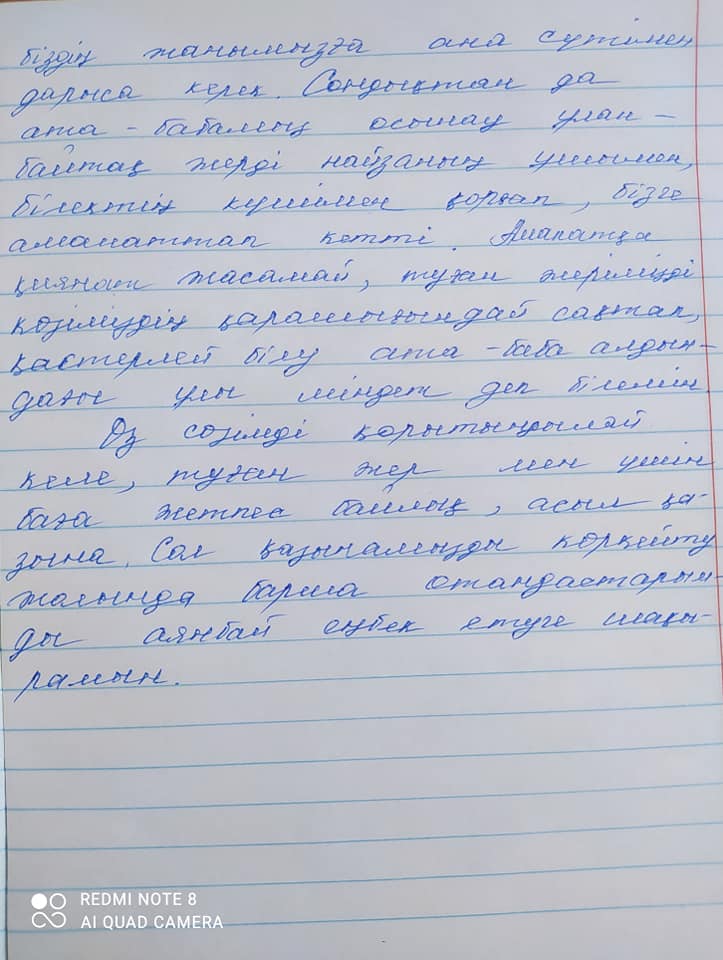 біздің жанымызға ана сүтімен
дарыса керек. Сондықтан да
ата - бабамыз осынау ұлан -
байтақ жерді найзаның ұшымен,
білектің күшімен қорғап, бізге
аманаттап кетті. Аманатқа
қиянат жасамай, туған жерімізді
көзіміздің қарашығындай сақтап,
қастерлей білу ата - баба алдын-
дағы ұлы міндет деп білемін.
Өз сөзімді қорытындылай
келе, туған жер мен үшін
баға жетпес байлық, асыл қа-
зына. Сол қазынамызды көркейту
жолында барша отандастарым-
ды аянбай еңбек етуге шақы-
рамын.
REDMI NOTE 8
AI QUAD CAMERA